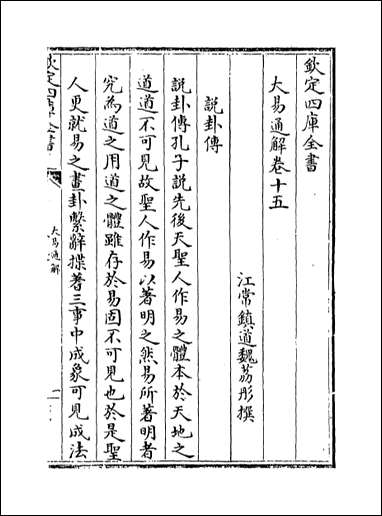 欽定四庫全書
大易通解卷十五
江常鎮道魏荔彤撰
說卦傳
說卦傳孔子説先後天聖人作易之體本於天地之
道道不可見故聖人作易以著明之然易所著明者
究為道之用道之體雖存於易固不可見也於是聖
人更就易之畫卦繫辭揲蓍三事中成象可見成法
欽定四庫全書
大易通解
一